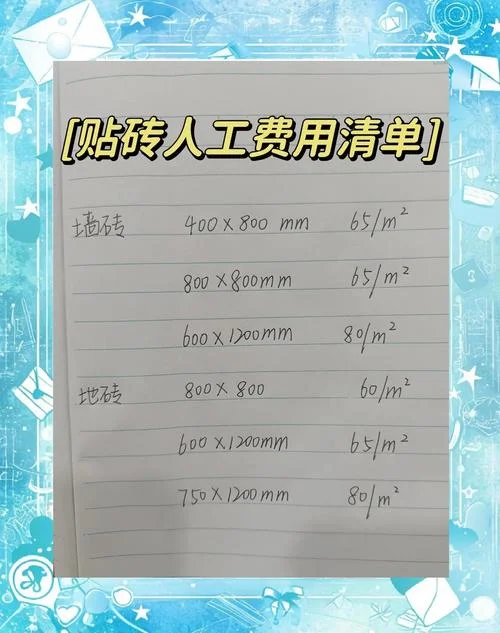 [贴砖人工费用清单]
墙砖 400×800 mm 65/m²
800×800mm 65/m²
600×1200mm 80/m²
地砖 800×800 60/m²
600×1200mm 65/m²
750×1200mm 80/m²